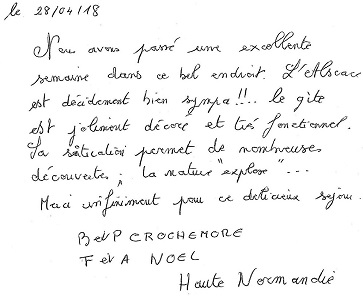 le 28/04/18
Nous avons passé une excellente
semaine dans ce bel endroit. L'Alsace
est décidement bien sympa !!.. le gîte
est joliment décoré et très fonctionnel.
Sa situation permet de nombreuses
découvertes ; la nature "explose"...
Merci infiniment pour ce délicieux séjour.
B et P CROCHEMORE
F et A NOEL
Haute Normandie